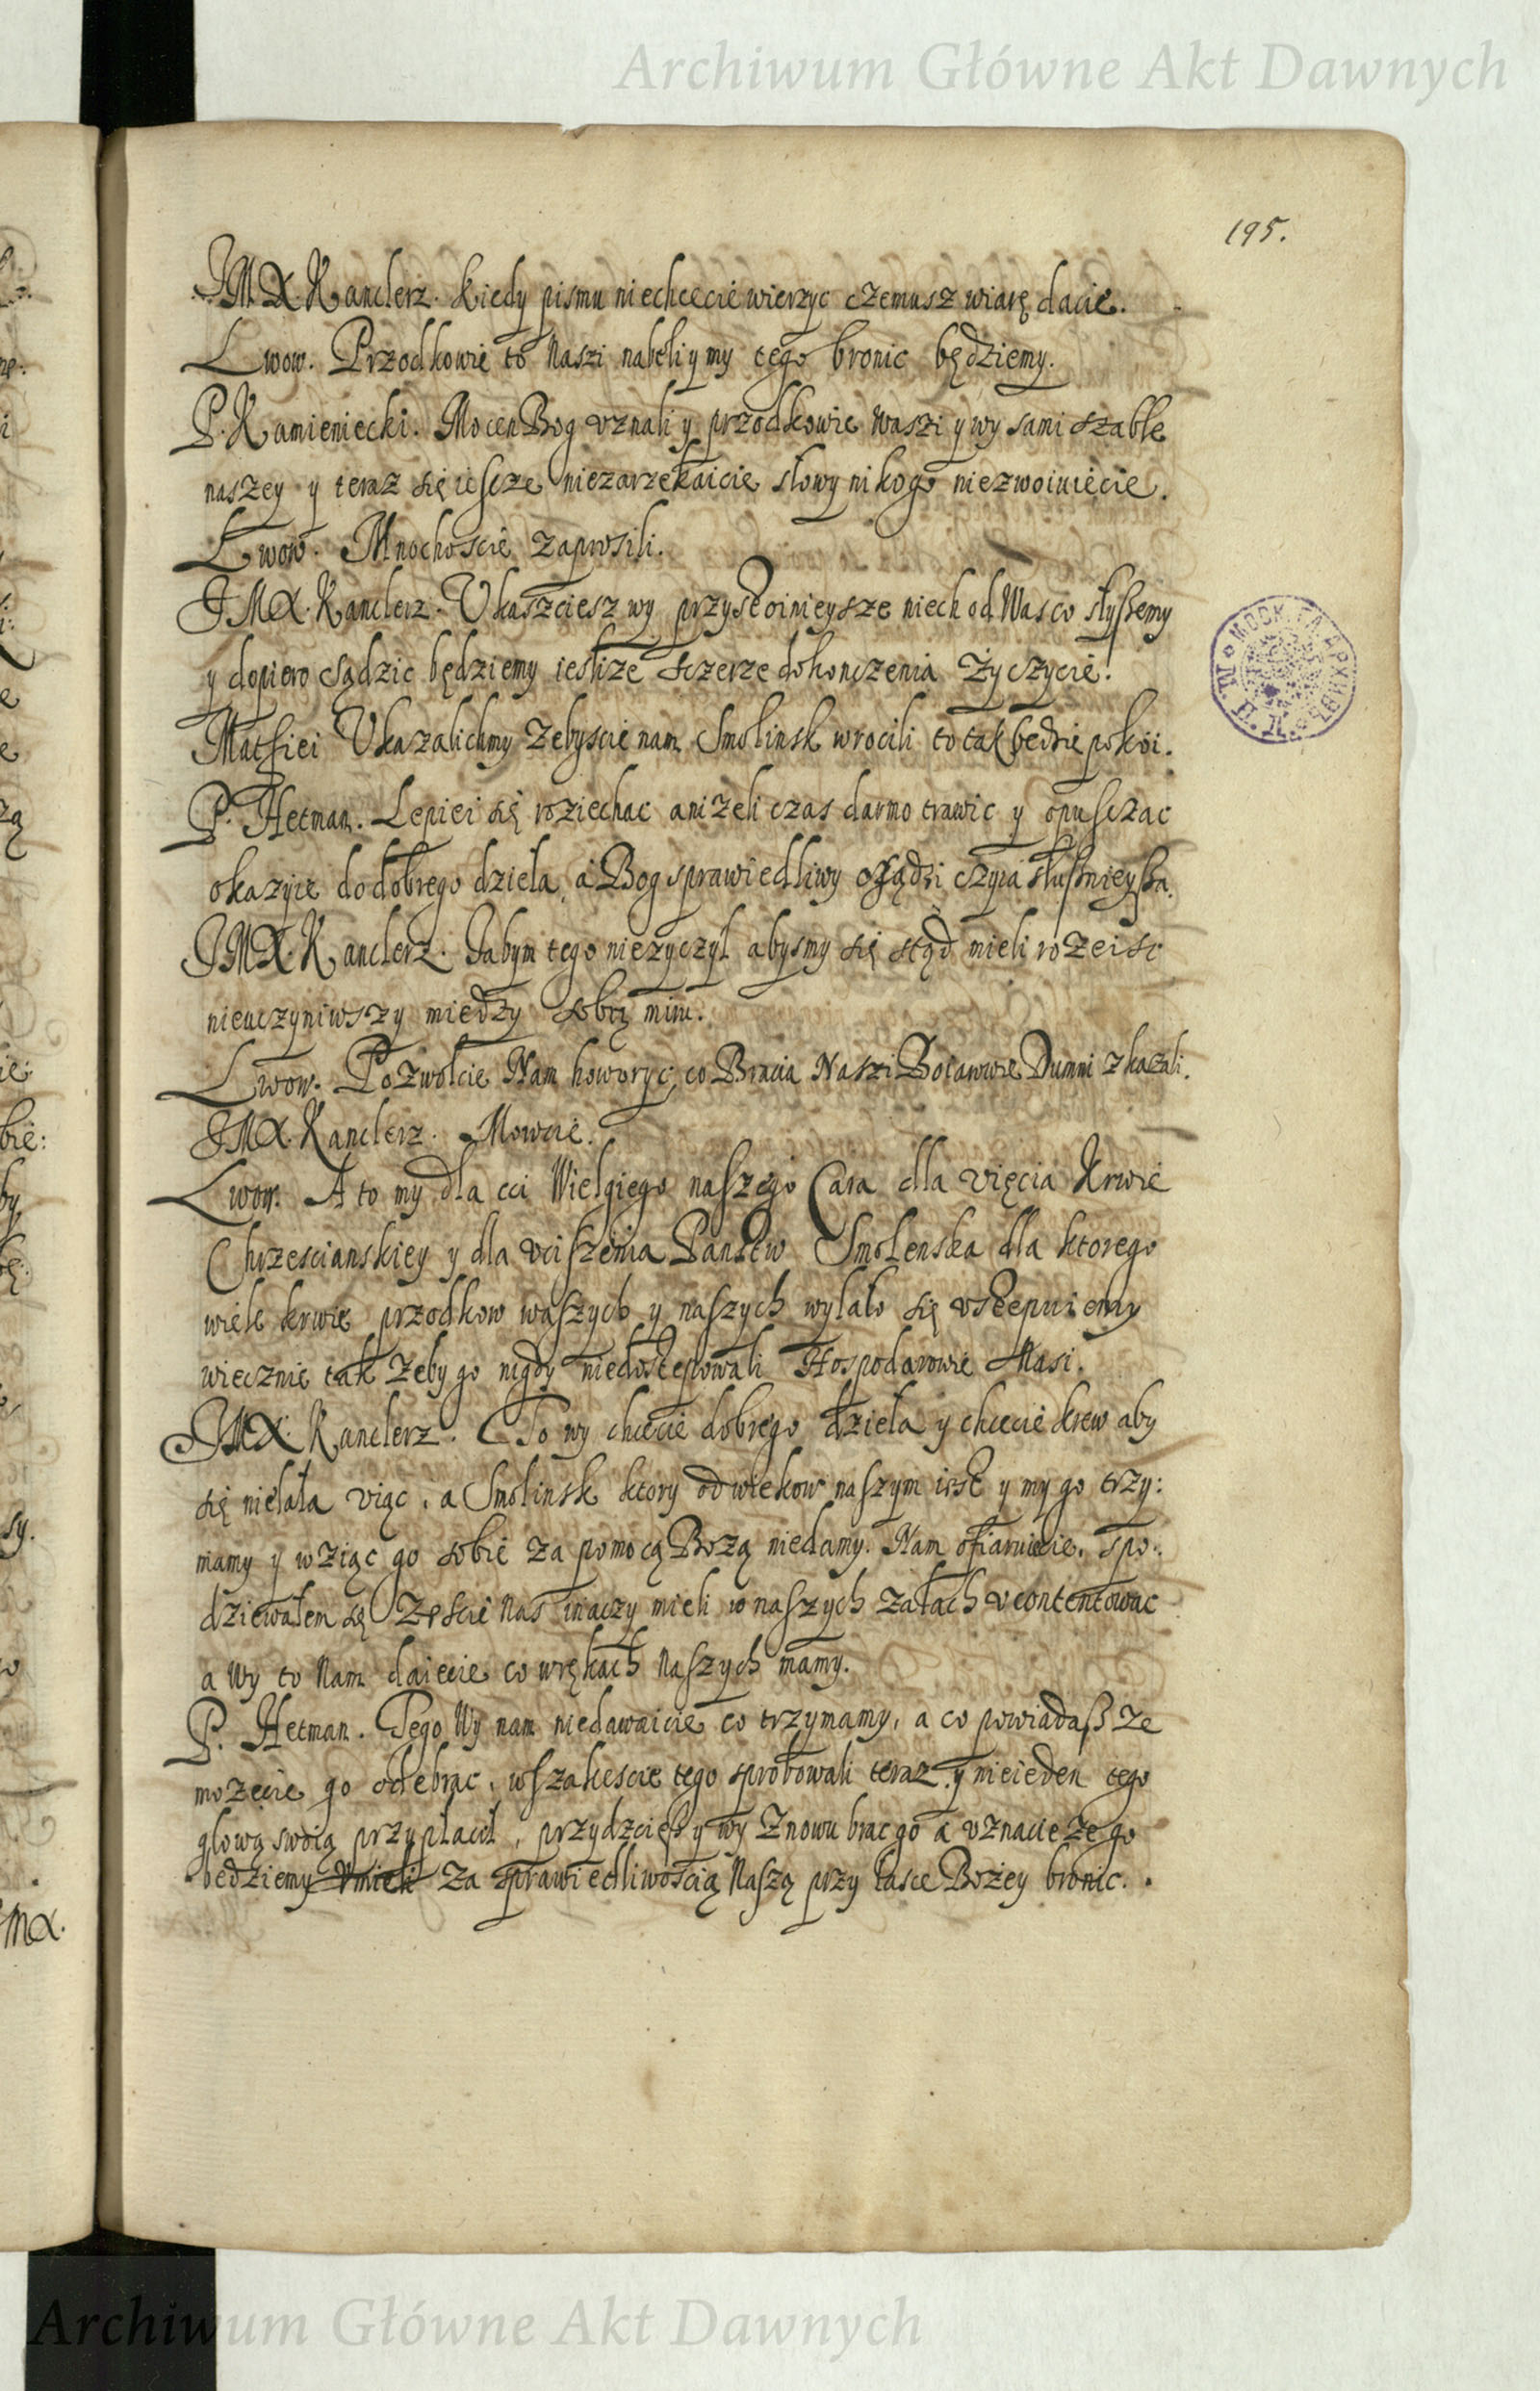 Archiwum Główne Akt Dawnych
195.
JMX. Kanclerz. Kiedy pismu niechcecie wierzyc czemusz wiarę dacie.
Lwow. Przodkowie to Naszi nabeli y my tego bronic będziemy.
P. Kamieniecki. Mocen Bog vznali y przodkowie Waszi y wy sami szable
naszey y teraz się iescze niezarzekaicie słowy nikogo niezwoiuiecie.
Lwow. Mnohoscie zaprosili.
JMX. Kanclerz. Vkaszciesz wy przystoinieysze niech od Was co słyszemy
y dopiero sądzic będziemy iestize sczerze dokonczenia Życzycie.
Matfiei Vkazalichmy Zebyscie nam Smolinsk wrocili to tak bedzie pokoi.
P. Hetman. Lepiei się roziechac anizeli czas darmo trawic y opusczac
okazyie do dobrego dzieła, a Bog sprawiedliwy osądzi czyia słusznieysza.
JMX. Kanclerz. Jabym tego niezyczył abysmy się stąd mieli rozeisc
nieuczyniwszy miedzy sobą miru.
Lwow. Pozwolcie Nam howoryc, co Bracia Naszi Boiarowie Dumni zkazali.
JMX. Kanclerz. Mowcie.
Lwow. A to my dla cci Wielgiego naszego Cara dla vięcia Krwie
Chrzescianskiey y dla vciszenia Panstw Smolenska dla ktorego
wiele krwie przodkow waszych y naszych wylało się vstepuiemy
wiecznie tak Zeby go nigdy niedostepowali Hospodarowie Nasi.
JMX. Kanclerz. To wy chcecie dobrego dzieła y chcecie krew aby
się nielała viąc, a Smolinsk ktory od wiekow naszym iest y my go trzy:
mamy y wziąc go sobie za pomocą Bozą niedamy. Nam ofiaruiecie. Spo:
dziewałem się Zescie Nas inaczy mieli w naszych załach vcontentowac
a Wy to Nam daiecie co w rękach Naszych mamy.
P. Hetman. Tego Wy nam niedawaicie co trzymamy, a co powiadasz ze
mozecie go odebrac, wszakescie tego sprobowali teraz y nieieden tego
głową swoią przypłacił, przydzciesz y wy Znowu brac go a vznacie ze go
bedziemy vmieli za sprawiedliwoscią Naszą przy łasce Bożey bronic.
Archiwum Główne Akt Dawnych